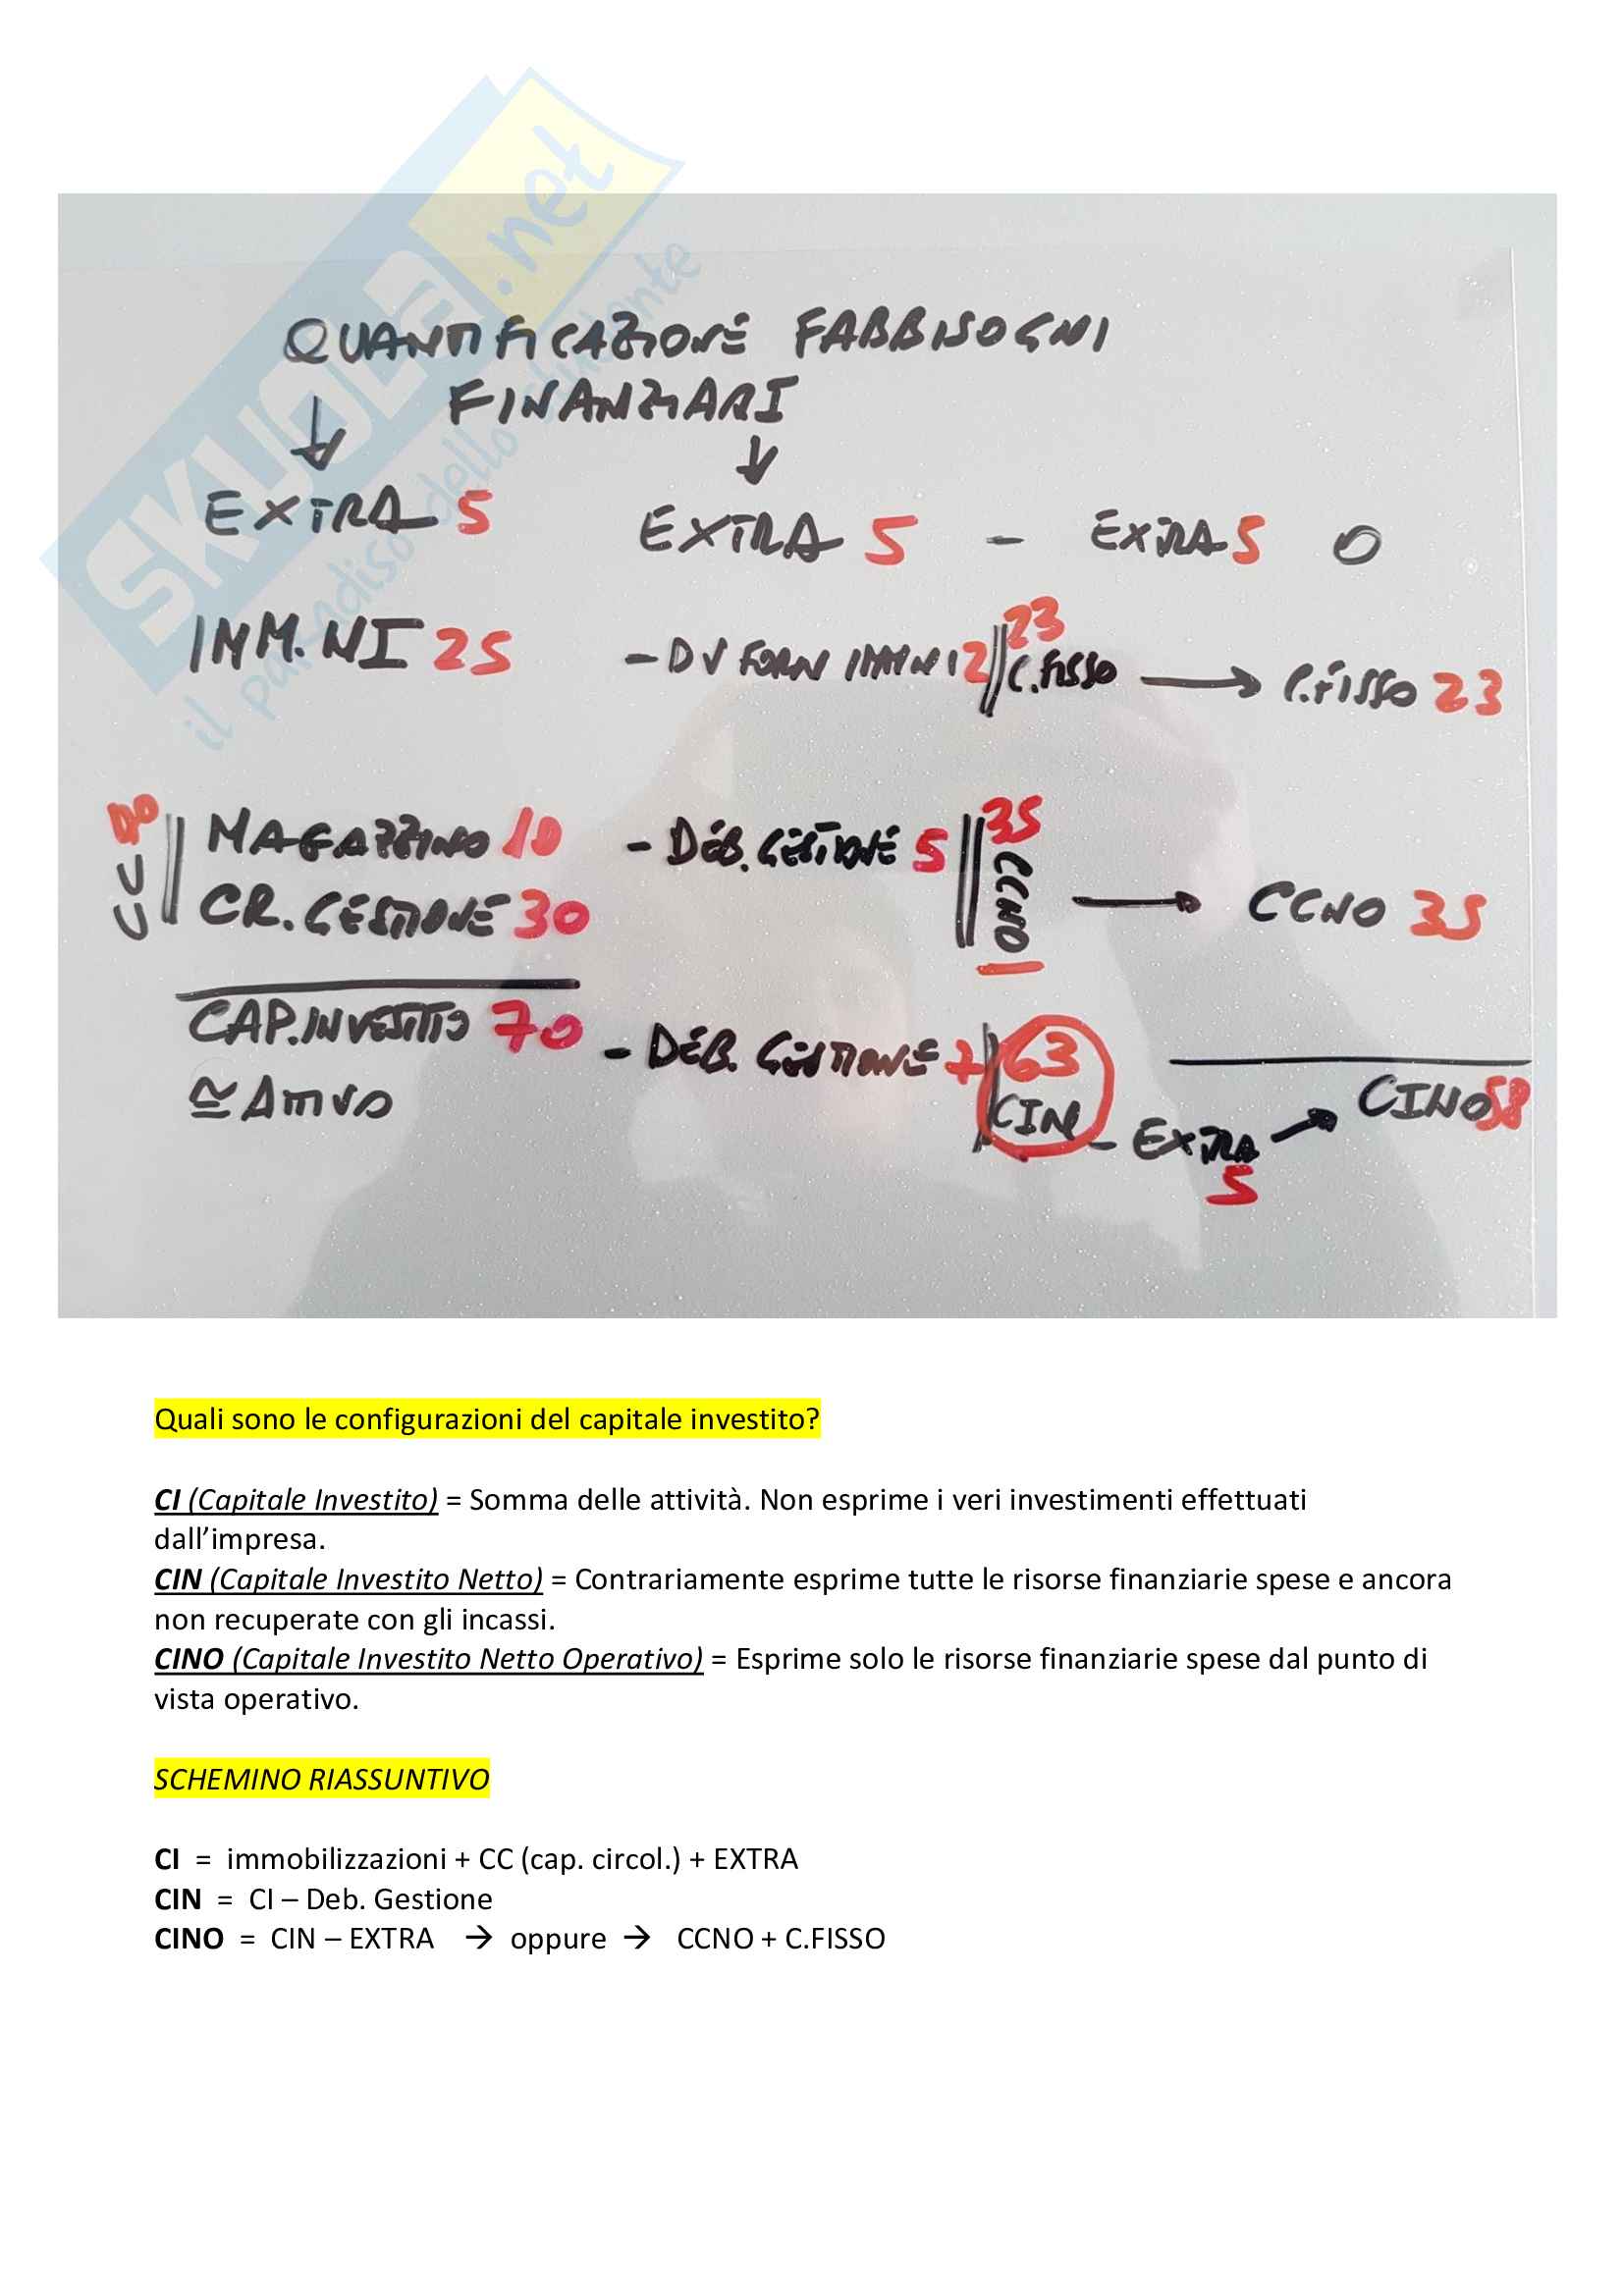 SKUOLA.net
il paradiso dello studente
QUANTIFICAZIONE FABBISOGNI
FINANZIARI
EXTRA 5 EXTRA 5 - EXTRA 5 0
IMM.NI 25 - DV FORN IMMNI 2 23 C.FISSO → C.FISSO 23
40 CC MAGAZZINO 10 - DEB. GESTIONE 5 35 CCNO → CCNO 35
CR. GESTIONE 30
CAP. INVESTITO 70 - DEB. GESTIONE 7 63 CIN - EXTRA 5 → CINO 58
≅ ATTIVO
Quali sono le configurazioni del capitale investito?
CI (Capitale Investito) = Somma delle attività. Non esprime i veri investimenti effettuati
dall’impresa.
CIN (Capitale Investito Netto) = Contrariamente esprime tutte le risorse finanziarie spese e ancora
non recuperate con gli incassi.
CINO (Capitale Investito Netto Operativo) = Esprime solo le risorse finanziarie spese dal punto di
vista operativo.
SCHEMINO RIASSUNTIVO
CI = immobilizzazioni + CC (cap. circol.) + EXTRA
CIN = CI – Deb. Gestione
CINO = CIN – EXTRA → oppure → CCNO + C.FISSO